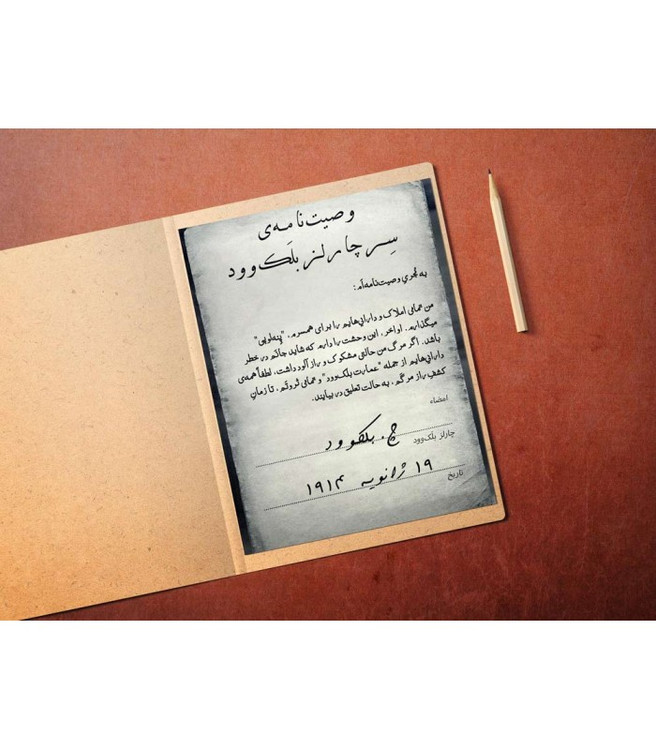 وصیت‌نامه‌ی
سِر چارلز بلَک‌وود
به مُجریِ وصیت‌نامه‌ام:
من تمامی املاک و دارائی‌هایم را برای همسرم، "پنه‌لوپی"
میگذارم. اواخر، این وحشت را دارم که شاید جانم در خطر
باشد. اگر مرگ من حالتی مشکوک و رازآلود داشت، لطفاً همه‌ی
دارائی‌هایم از جمله "عمارت بلک‌وود" و تمامی ثروتم، تا زمان
کشفِ رازِ مرگم، به حالت تعلیق در بیایند.
امضاء
چ. بلکوود
چارلز بلَک‌وود
۱۹ ژانویه ۱۹۱۴
تاریخ